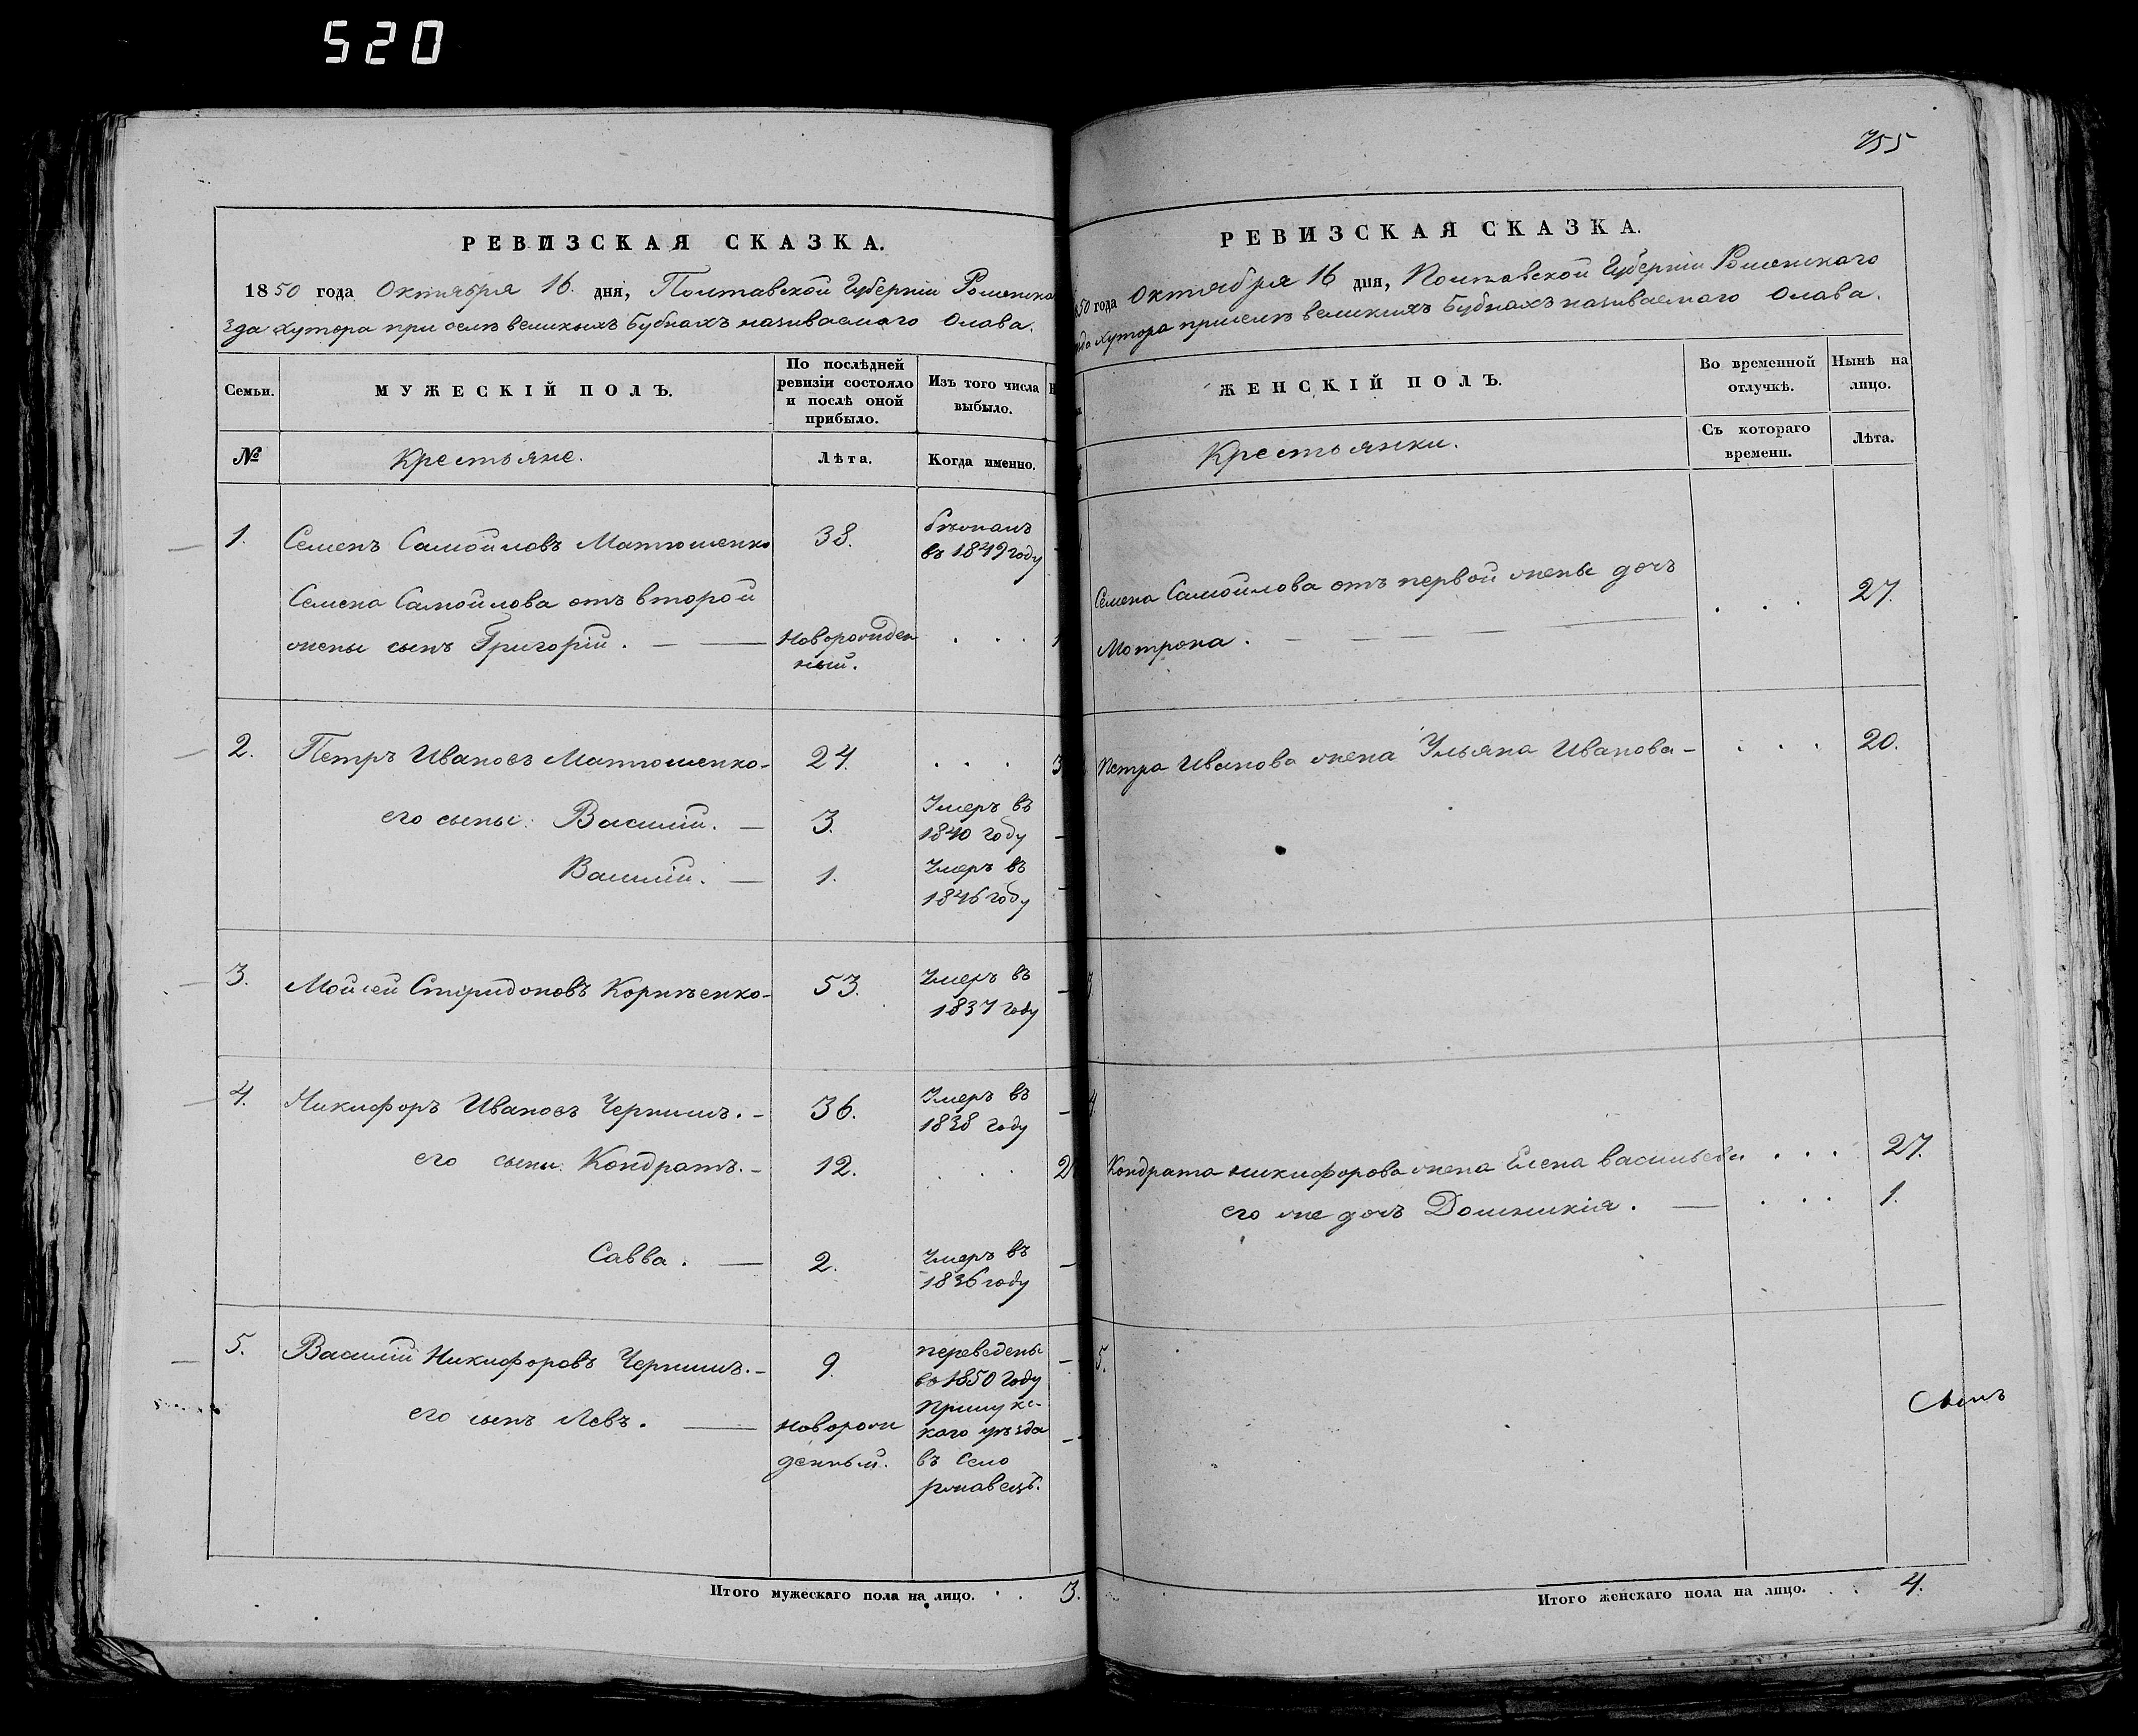 520
РЕВИЗСКАЯ СКАЗКА.
1850 года Октября 16 дня, Полтавской Губерніи Роменска
зда хутора при селѣ великихъ Бубнахъ называемаго Олава.
Семьи.
МУЖЕСКІЙ ПОЛЪ.
По послѣдней ревизіи состояло и послѣ оной прибыло.
Изъ того числа выбыло.
№
Крестьяне.
Лѣта.
Когда именно.
1. Семенъ Самойловъ Матюшенко 38. бѣжалъ
въ 1849 году
Семена Самойлова отъ второй
жены сынъ Григорій. — Новорожден . . .
ный.
2. Петръ Ивановъ Матюшенко - 24. . . . 3
его сыны: Василій. — 3. Умеръ въ
1840 году
Василій. — 1. Умеръ въ
1846 году
3. Мойсей Спиридоновъ Корнѣенко - 53. Умеръ въ
1837 году
4. Никифоръ Ивановъ Чернышъ. - 36. Умеръ въ
1838 году
его сыны: Кондратъ. - 12. . . 2
Савва. — 2. Умеръ въ
1836 году
5. Василій Никифоровъ Чернышъ. - 9. переведены
въ 1850 году
его сынъ Левъ. — Новорож
денный.
Прилукс-
каго уѣзда
въ Село
ржавецъ.
Итого мужескаго пола на лицо. . . 3.
755
РЕВИЗСКАЯ СКАЗКА.
850 года Октября 16 дня, Полтавской Губерніи Роменскаго
хутора при селѣ великихъ Бубнахъ называемаго Олава.
ЖЕНСКІЙ ПОЛЪ.
Во временной отлучкѣ.
Нынѣ на лицо.
Крестьянки.
Съ котораго времени.
Лѣта.
Семена Самойлова отъ первой жены дочь
Мотрона. — . . . 27.
Петра Иванова жена Ульяна Иванова - . . . 20.
3.
4
Кондрата никифорова жена Елена васильева . . . 27.
его же дочь Домникія. — . . . 1.
5.
Итого женскаго пола на лицо. . . 4.